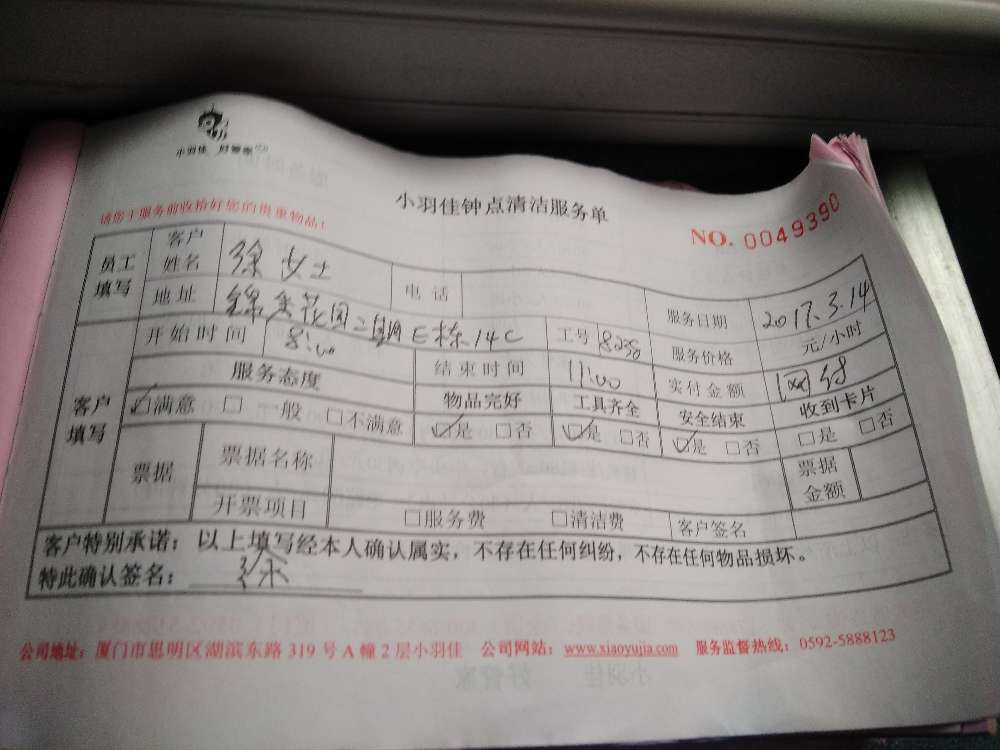 小羽佳 好管家
小羽佳钟点清洁服务单
请您于服务前收拾好您的贵重物品！
NO. 0049390
员工填写 客户姓名 徐女士 电话 服务日期 2017.3.14
地址 绿金花园二期E栋14C 工号 8238 服务价格 元/小时
客户填写 开始时间 8:00 结束时间 11:00 实付金额 网付
服务态度 物品完好 工具齐全 安全结束 收到卡片
☑满意 □一般 □不满意 ☑是 □否 ☑是 □否 ☑是 □否 □是 □否
票据 票据名称 票据金额
开票项目 □服务费 □清洁费 客户签名
客户特别承诺：以上填写经本人确认属实，不存在任何纠纷，不存在任何物品损坏。
特此确认签名： 徐
公司地址：厦门市思明区湖滨东路 319 号 A 幢 2 层小羽佳 公司网站：www.xiaoyujia.com 服务监督热线：0592-5888123